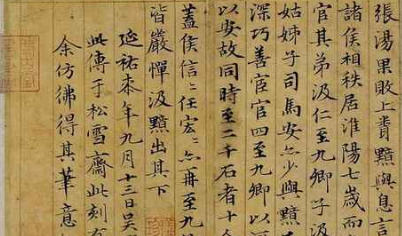 張湯果敗上聞黯與息言
諸侯相秩居淮陽七歲而
官其弟汲仁至九卿子汲
姑姊子司馬安亦少與黯
深巧善宦官四至九卿以河
以安故同時至二千石者十
蓋侯信信任宏宏亦再至九
皆嚴憚汲黯出其下
延祐七年九月十三日吳
此傳于松雪齋此刻有
余仿佛得其筆意